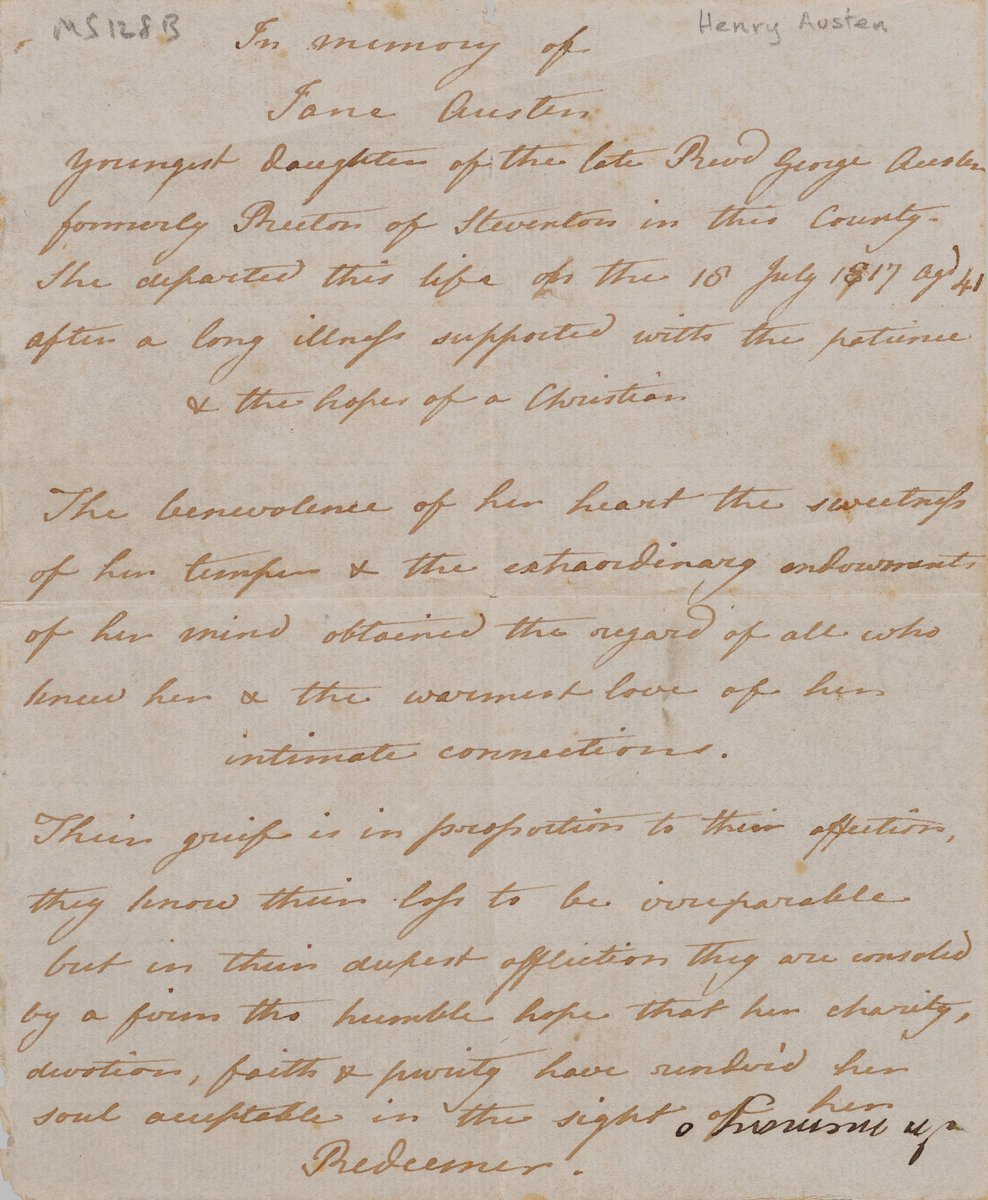 MS 128 B
Henry Austen
In memory of
Jane Austen
youngest daughter of the late Revd George Austen
formerly Rector of Steventon in this County.
She departed this life on the 18 July 1817 agd 41
after a long illness supported with the patience
& the hopes of a Christian
The benevolence of her heart the sweetness
of her temper & the extraordinary endowments
of her mind obtained the regard of all who
knew her & the warmest love of her
intimate connections.
Their grief is in proportion to their affection,
they know their loss to be irreparable
but in their deepest affliction they are consoled
by a firm tho humble hope that her charity,
devotion, faith & purity have render'd her
soul acceptable in the sight of her
Redeemer.